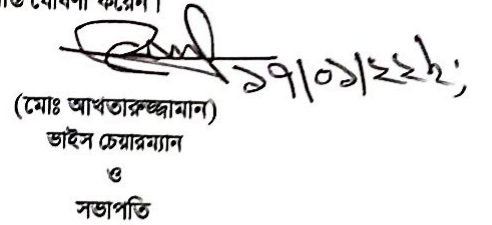 ঘোষণা করেন।
১৭/০১/২২ইং
(মোঃ আখতারুজ্জামান)
ভাইস চেয়ারম্যান
ও
সভাপতি